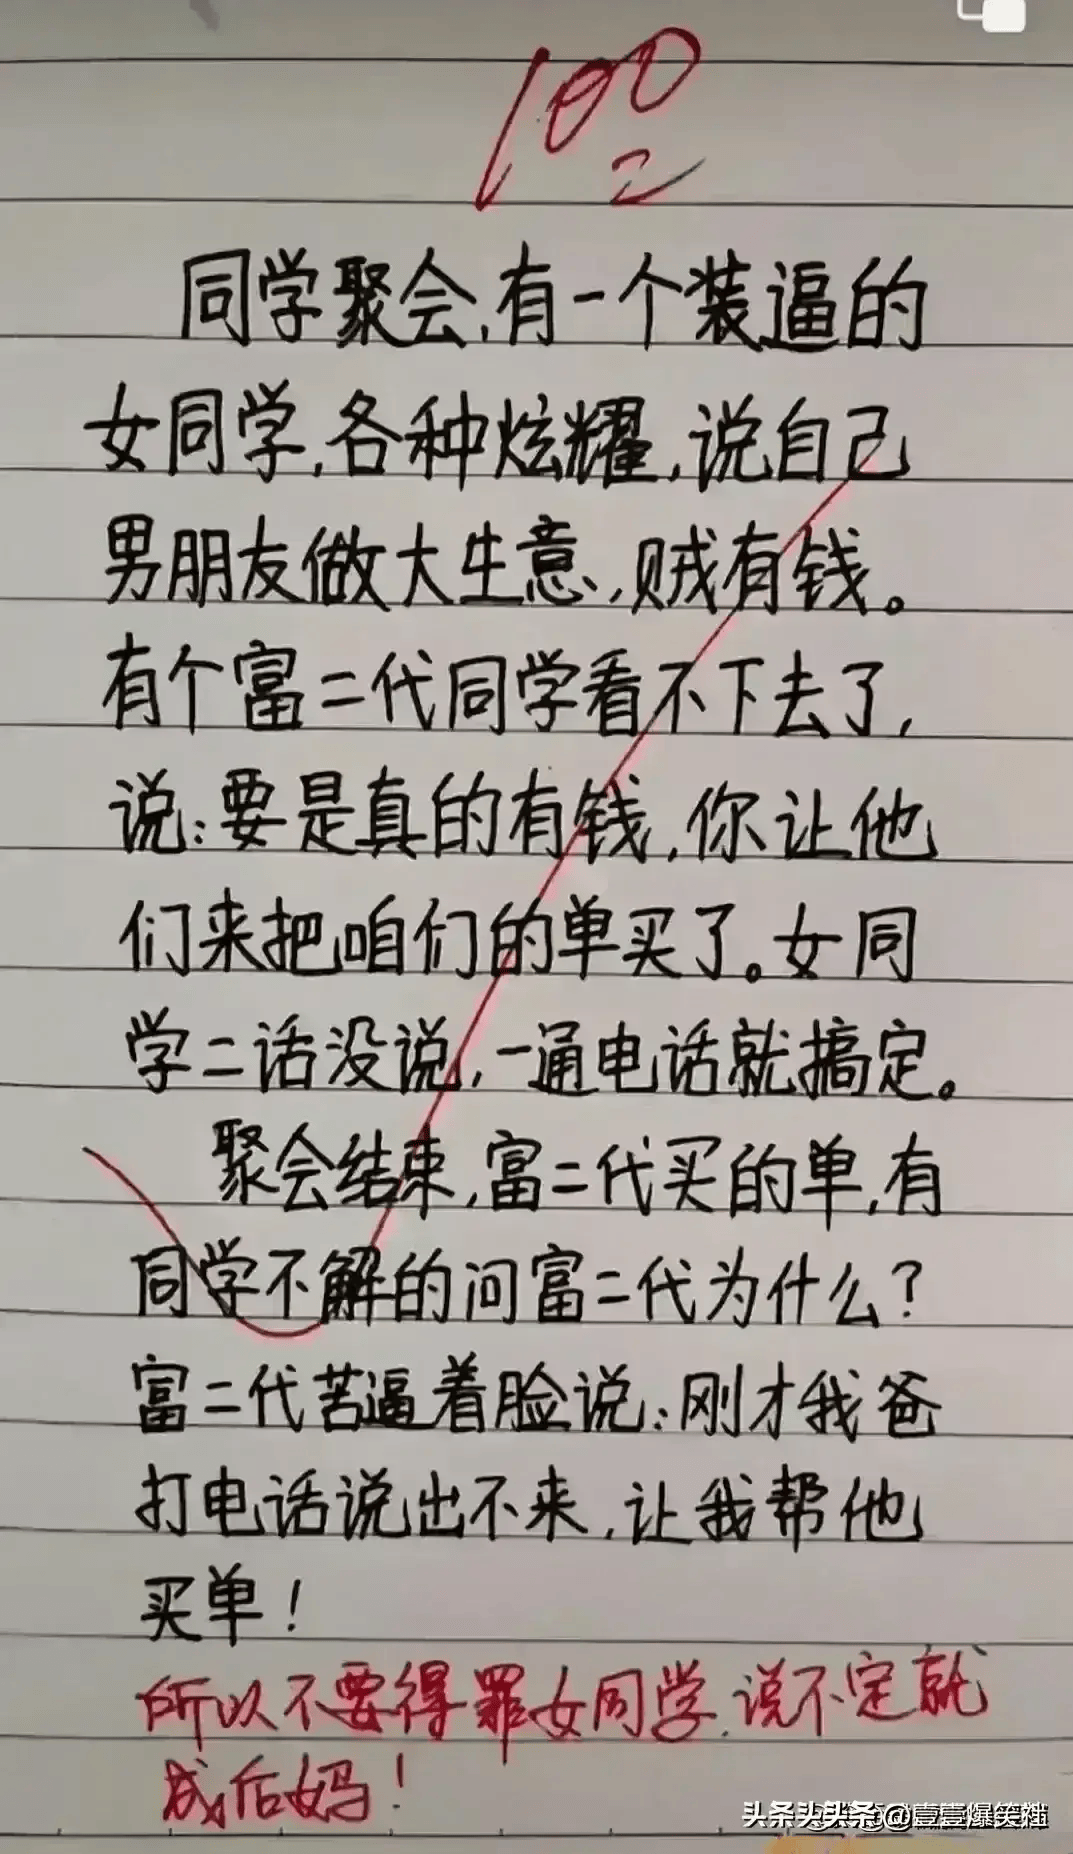 100
同学聚会,有一个装逼的
女同学,各种炫耀,说自己
男朋友做大生意,贼有钱。
有个富二代同学看不下去了,
说:要是真的有钱,你让他
们来把咱们的单买了。女同
学二话没说,一通电话就搞定。
聚会结束,富二代买的单,有
同学不解的问富二代为什么?
富二代苦逼着脸说:刚才我爸
打电话说出不来,让我帮他
买单!
所以不要得罪女同学,说不定就
成后妈!
头条头条@壹壹爆笑社